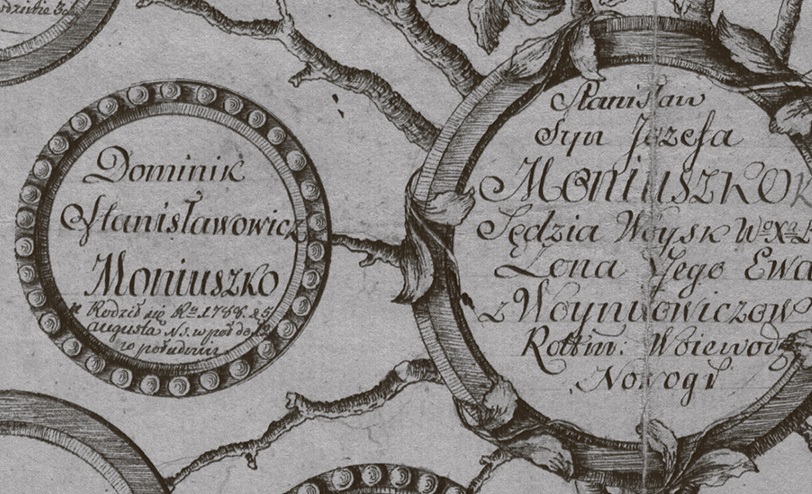 Dominik
Stanisławowicz
Moniuszko
Rodził się Rº 1788. 25
augusta N.S. w poł do
w południu
Stanisław
Syn Jozefa
MONIUSZKO
Sędzia Woysk
Żona Jego Ewa
z Woyniłowiczow
Rotłm: Woiewodz
Nowogr